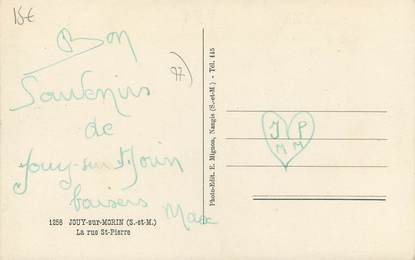 15€
Bon
77)
Souvenirs
de
Jouy-sur-Morin
baisers
Max
1258 JOUY-sur-MORIN (S.-et-M.)
La rue St-Pierre
Photo-Edit. E. Mignon, Nangis (S.-et-M.) - Tél. 445
J P
M M